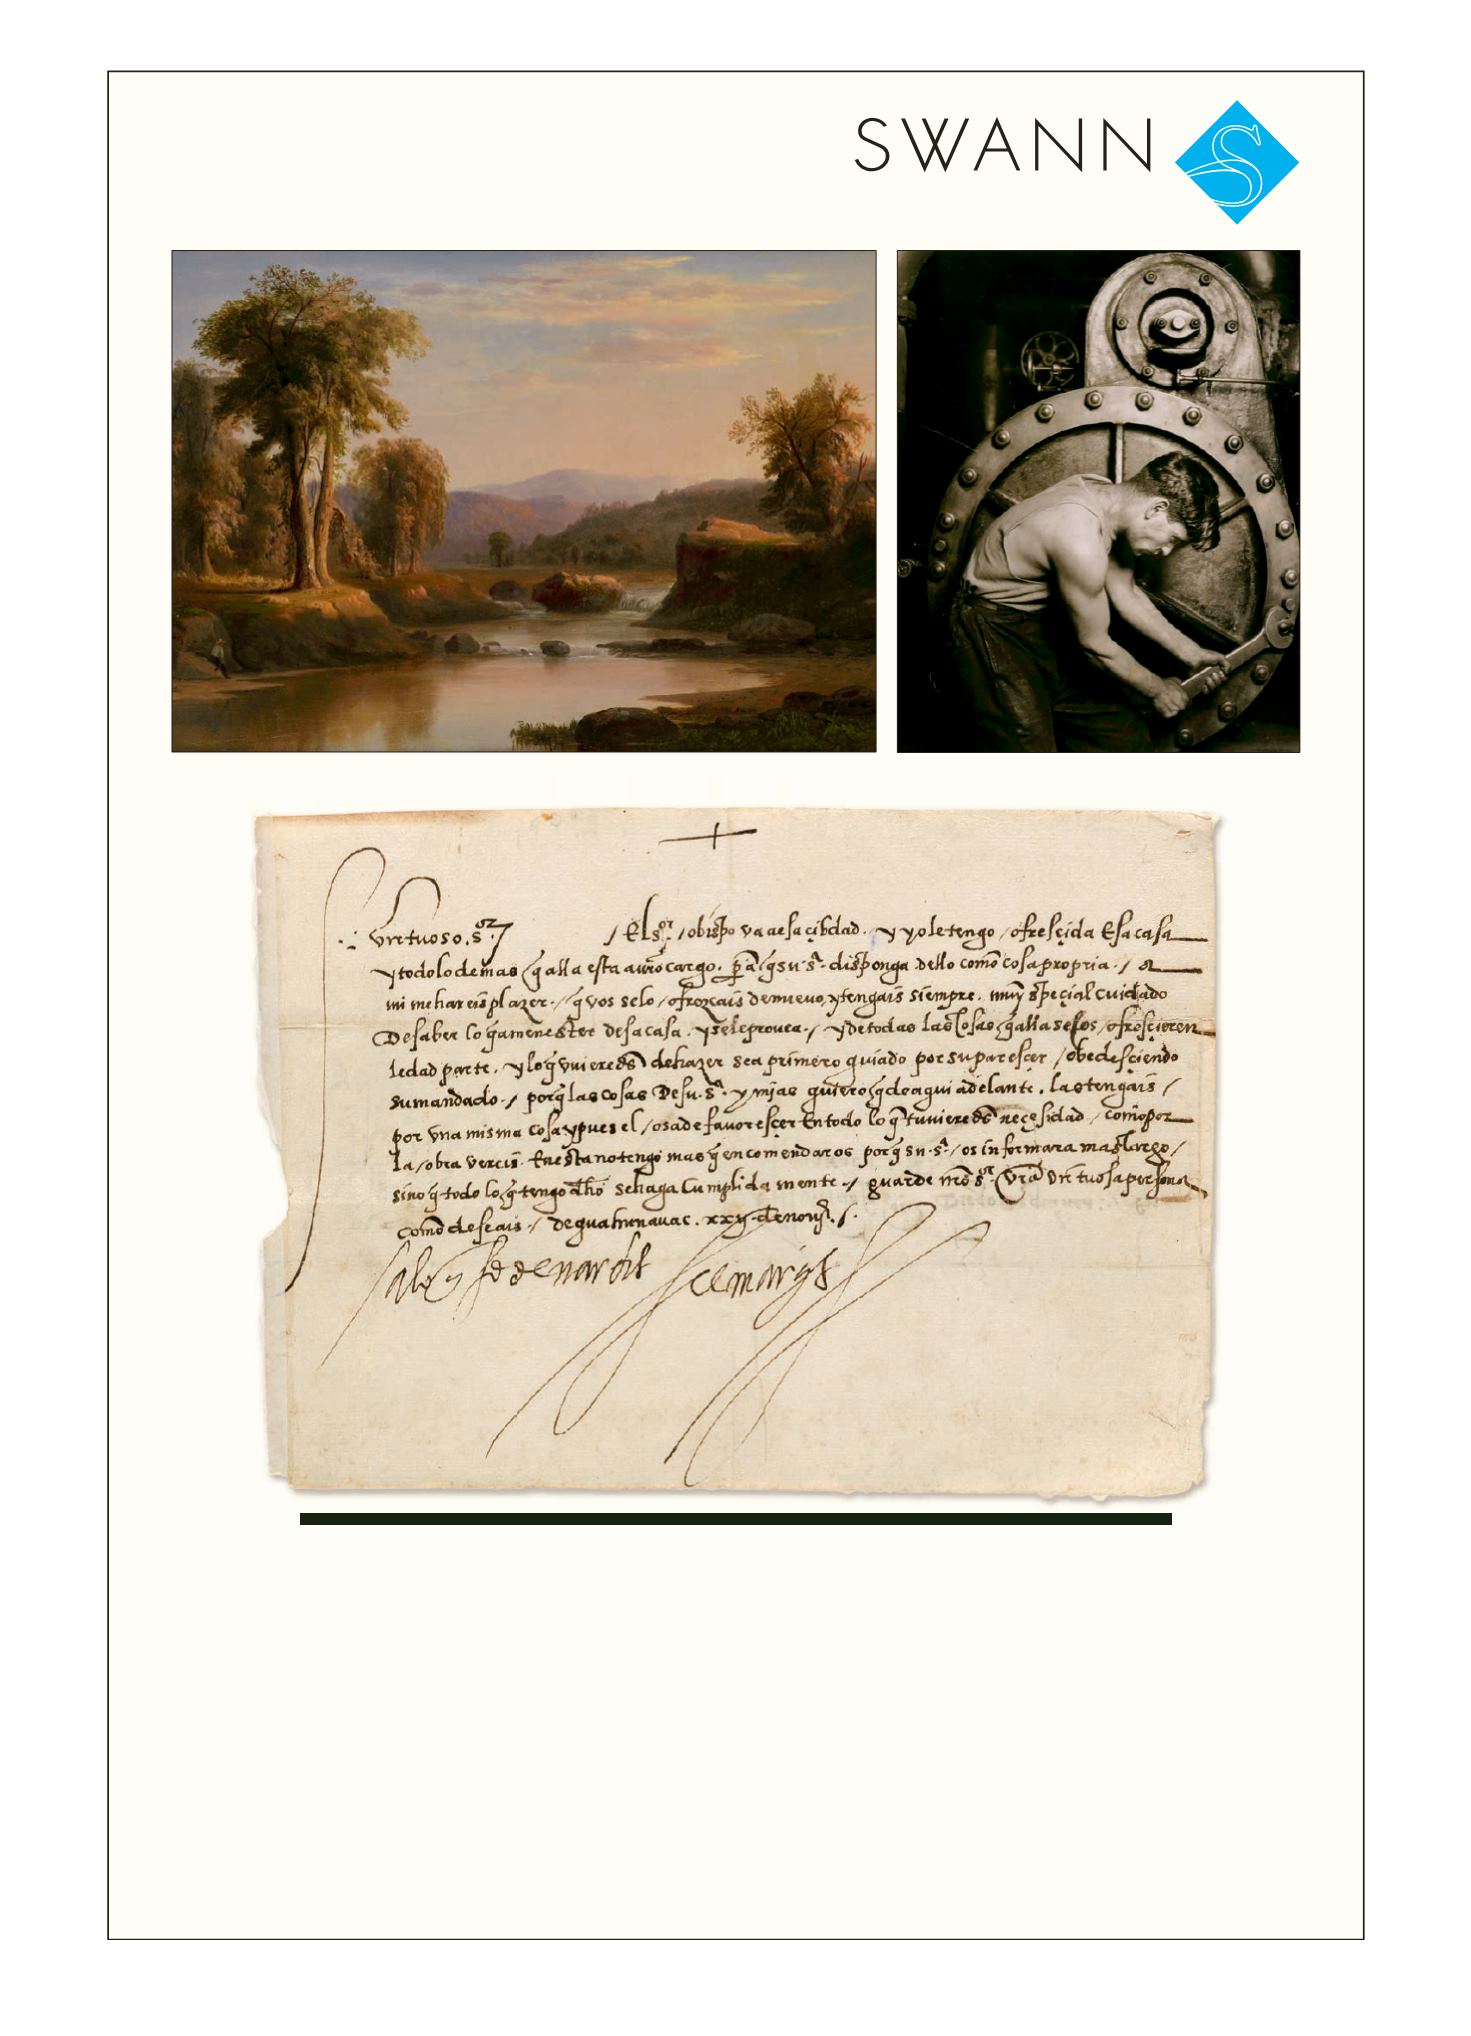 SWANN
S
virtuoso. sor / El sor / obispo va a esa çibdad. y yo le tengo / ofresçida Esa casa
y todo lo demas q alla esta a vro cargo. pa q su sa. disponga dello como cosa propria. / a
mi me hareis plazer. / q vos selo / ofrezcais de nuevo, y tengais siempre. muy speçial cuidado
De saber lo q a menester desa casa. y se le provea. / y de todas las Cosas q alla se / ofresçieren
le dad parte. y lo q de hazer sea primero guiado por su paresçer / obedesçiendo
su mandado. / porq las cosas De su. sa. y mias quiero q de aqui adelante. las tengais /
por una misma cosa y pues el / osa de favoresçer En todo lo q neçesidad / como por
la / obra vereis. En esta no tengo mas q encomendaros porq su. sa. / os informara mas largo /
sino q todo lo q tengo dho se haga Cumplidamente. / guarde nro sor vra virtuosa persona
como deseais. / de guahunavac. de
el marqs